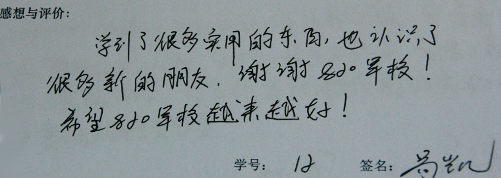 感想与评价:
学到了很多实用的东西,也认识了
很多新的朋友.谢谢820军校!
希望820军校越来越好!
学号: 12 签名: